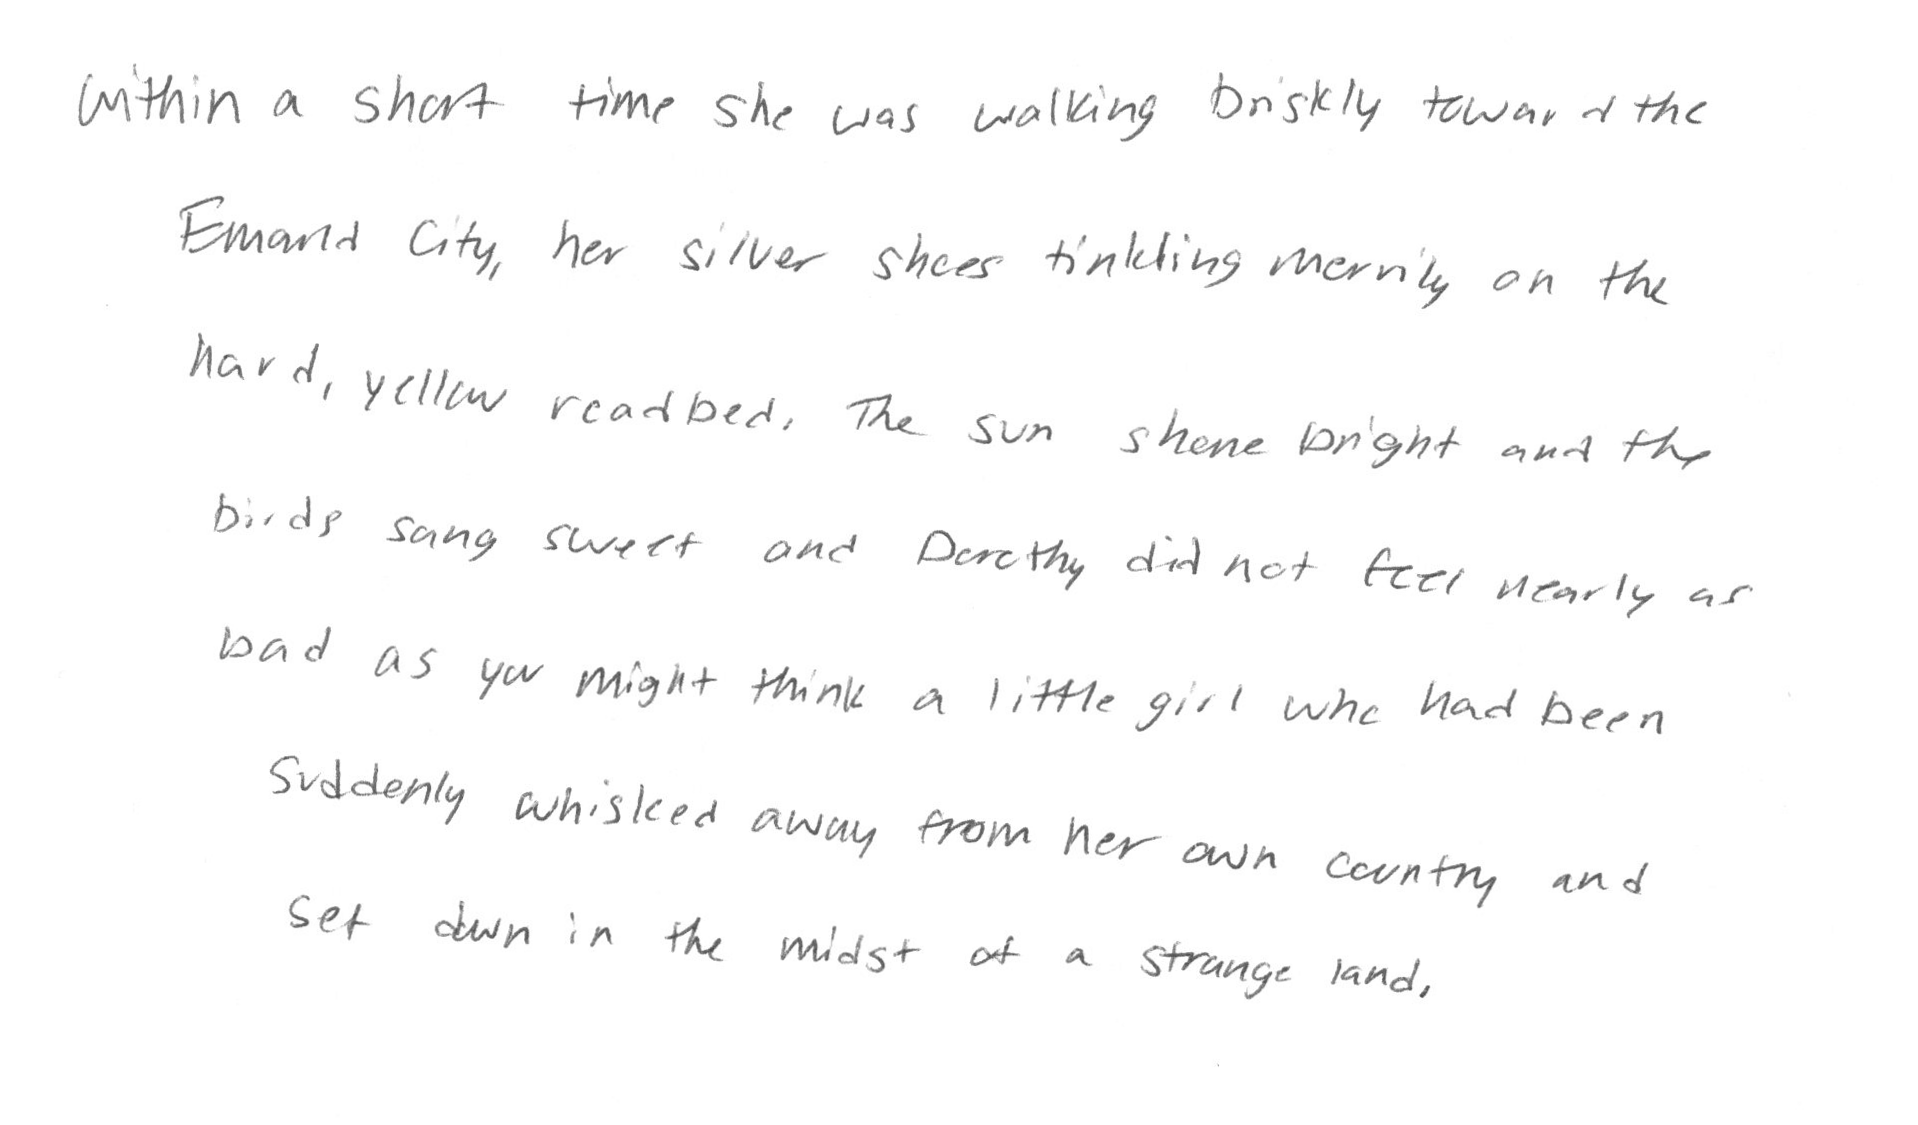 Within a short time she was walking briskly toward the
Emarld City, her silver shoes tinkling merrily on the
hard, yellow roadbed. The sun shone bright and the
birds sang sweet and Dorothy did not feel nearly as
bad as you might think a little girl who had been
suddenly whisked away from her own country and
set down in the midst of a strange land.